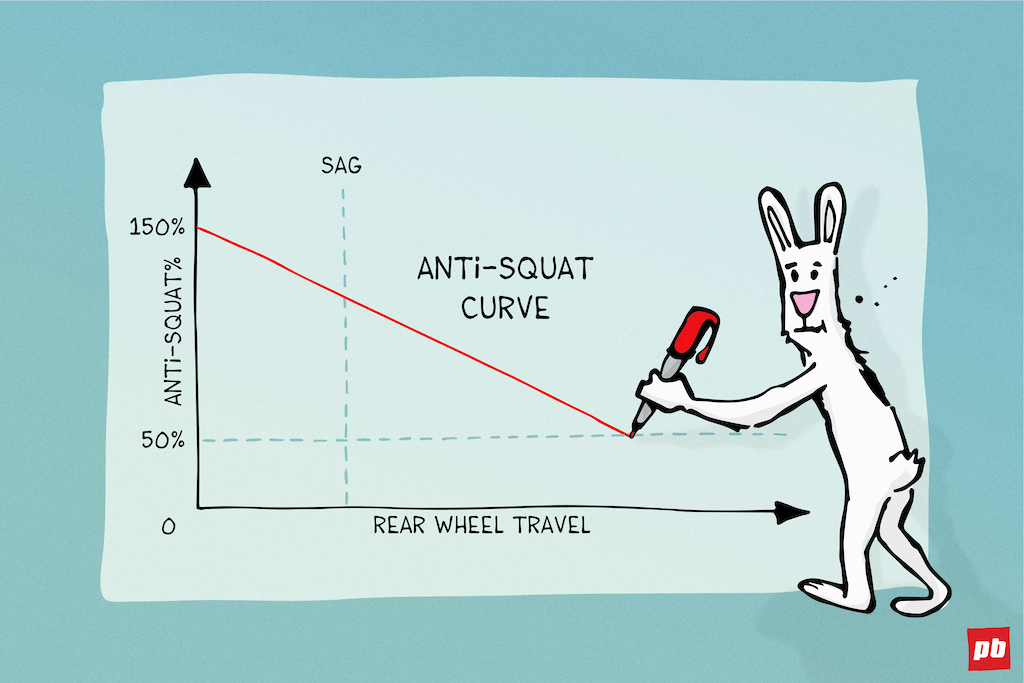 SAG
150%
ANTi-SQUAT%
ANTi-SQUAT
CURVE
50%
0
REAR WHEEL TRAVEL
pb